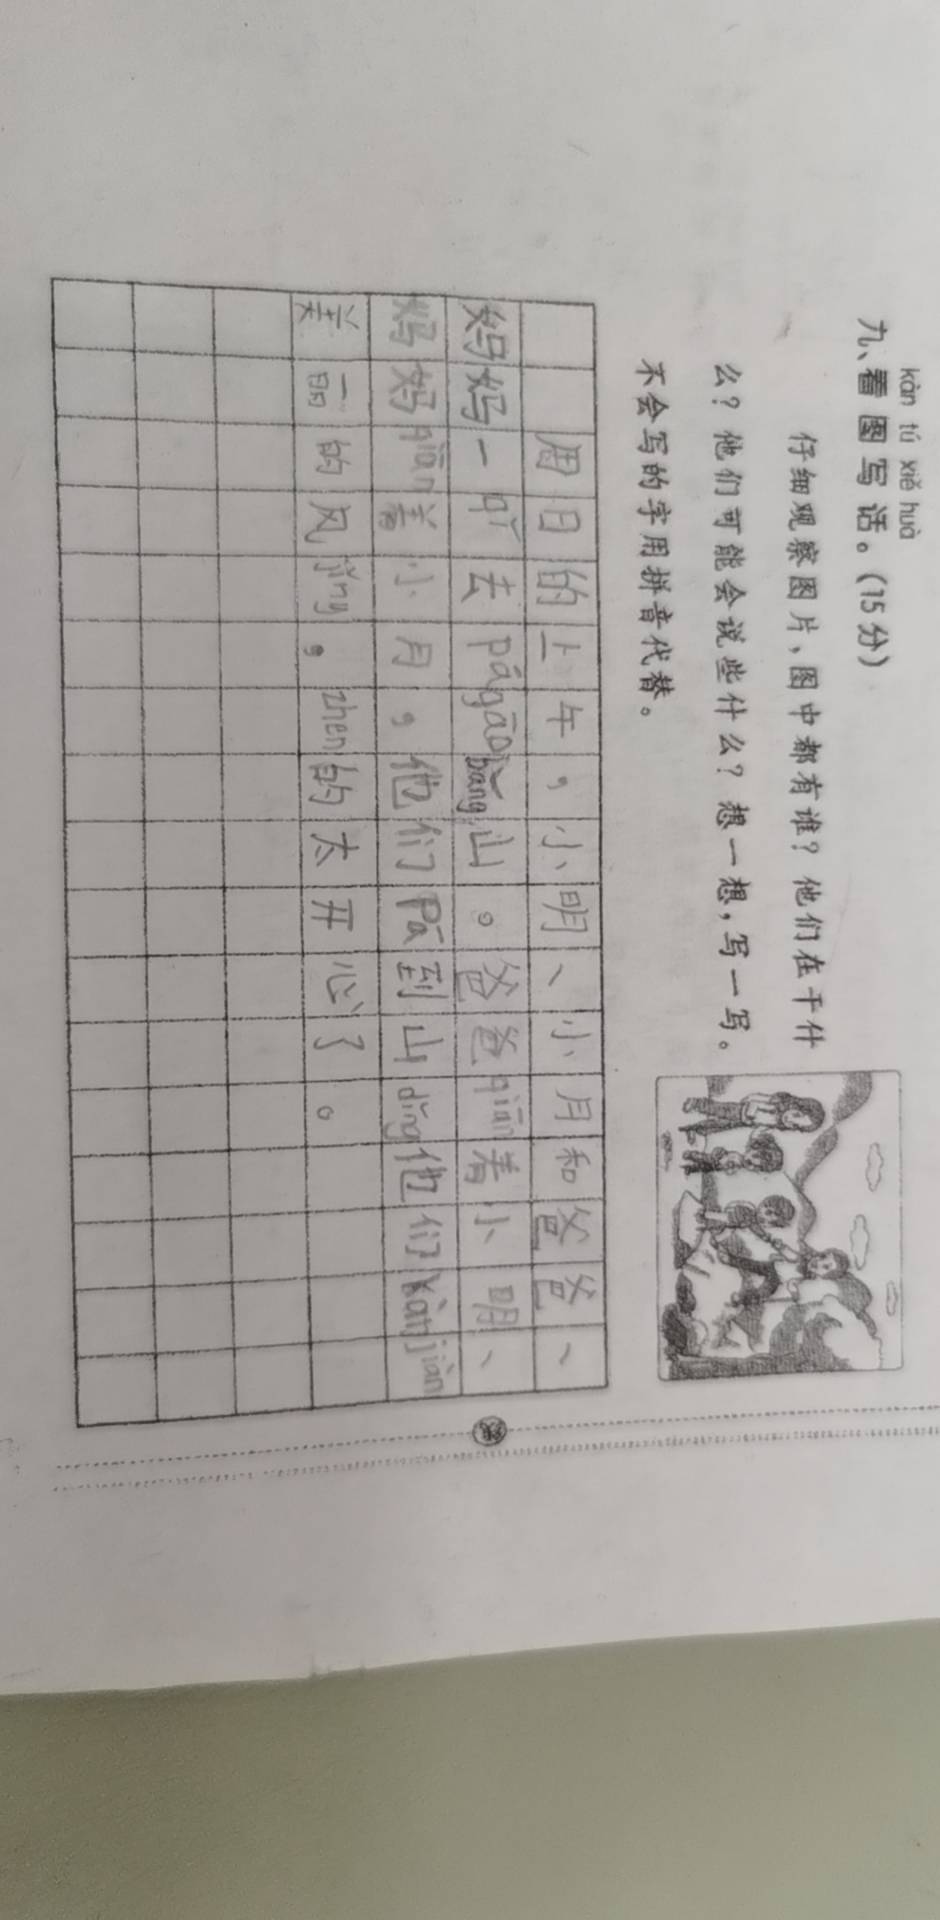 kàn tú xiě huà
九、看图写话。(15分)
仔细观察图片,图中都有谁?他们在干什
么?他们可能会说些什么?想一想,写一写。
不会写的字用拼音代替。
周日的上午,小明、小月和爸爸、
妈妈一qǐ去págāobǎng山。爸爸qiān着小明、
妈妈qiān着小月,他们Pā到山dǐng他们kànjiàn
美丽的风jǐng,zhen的太开心了。